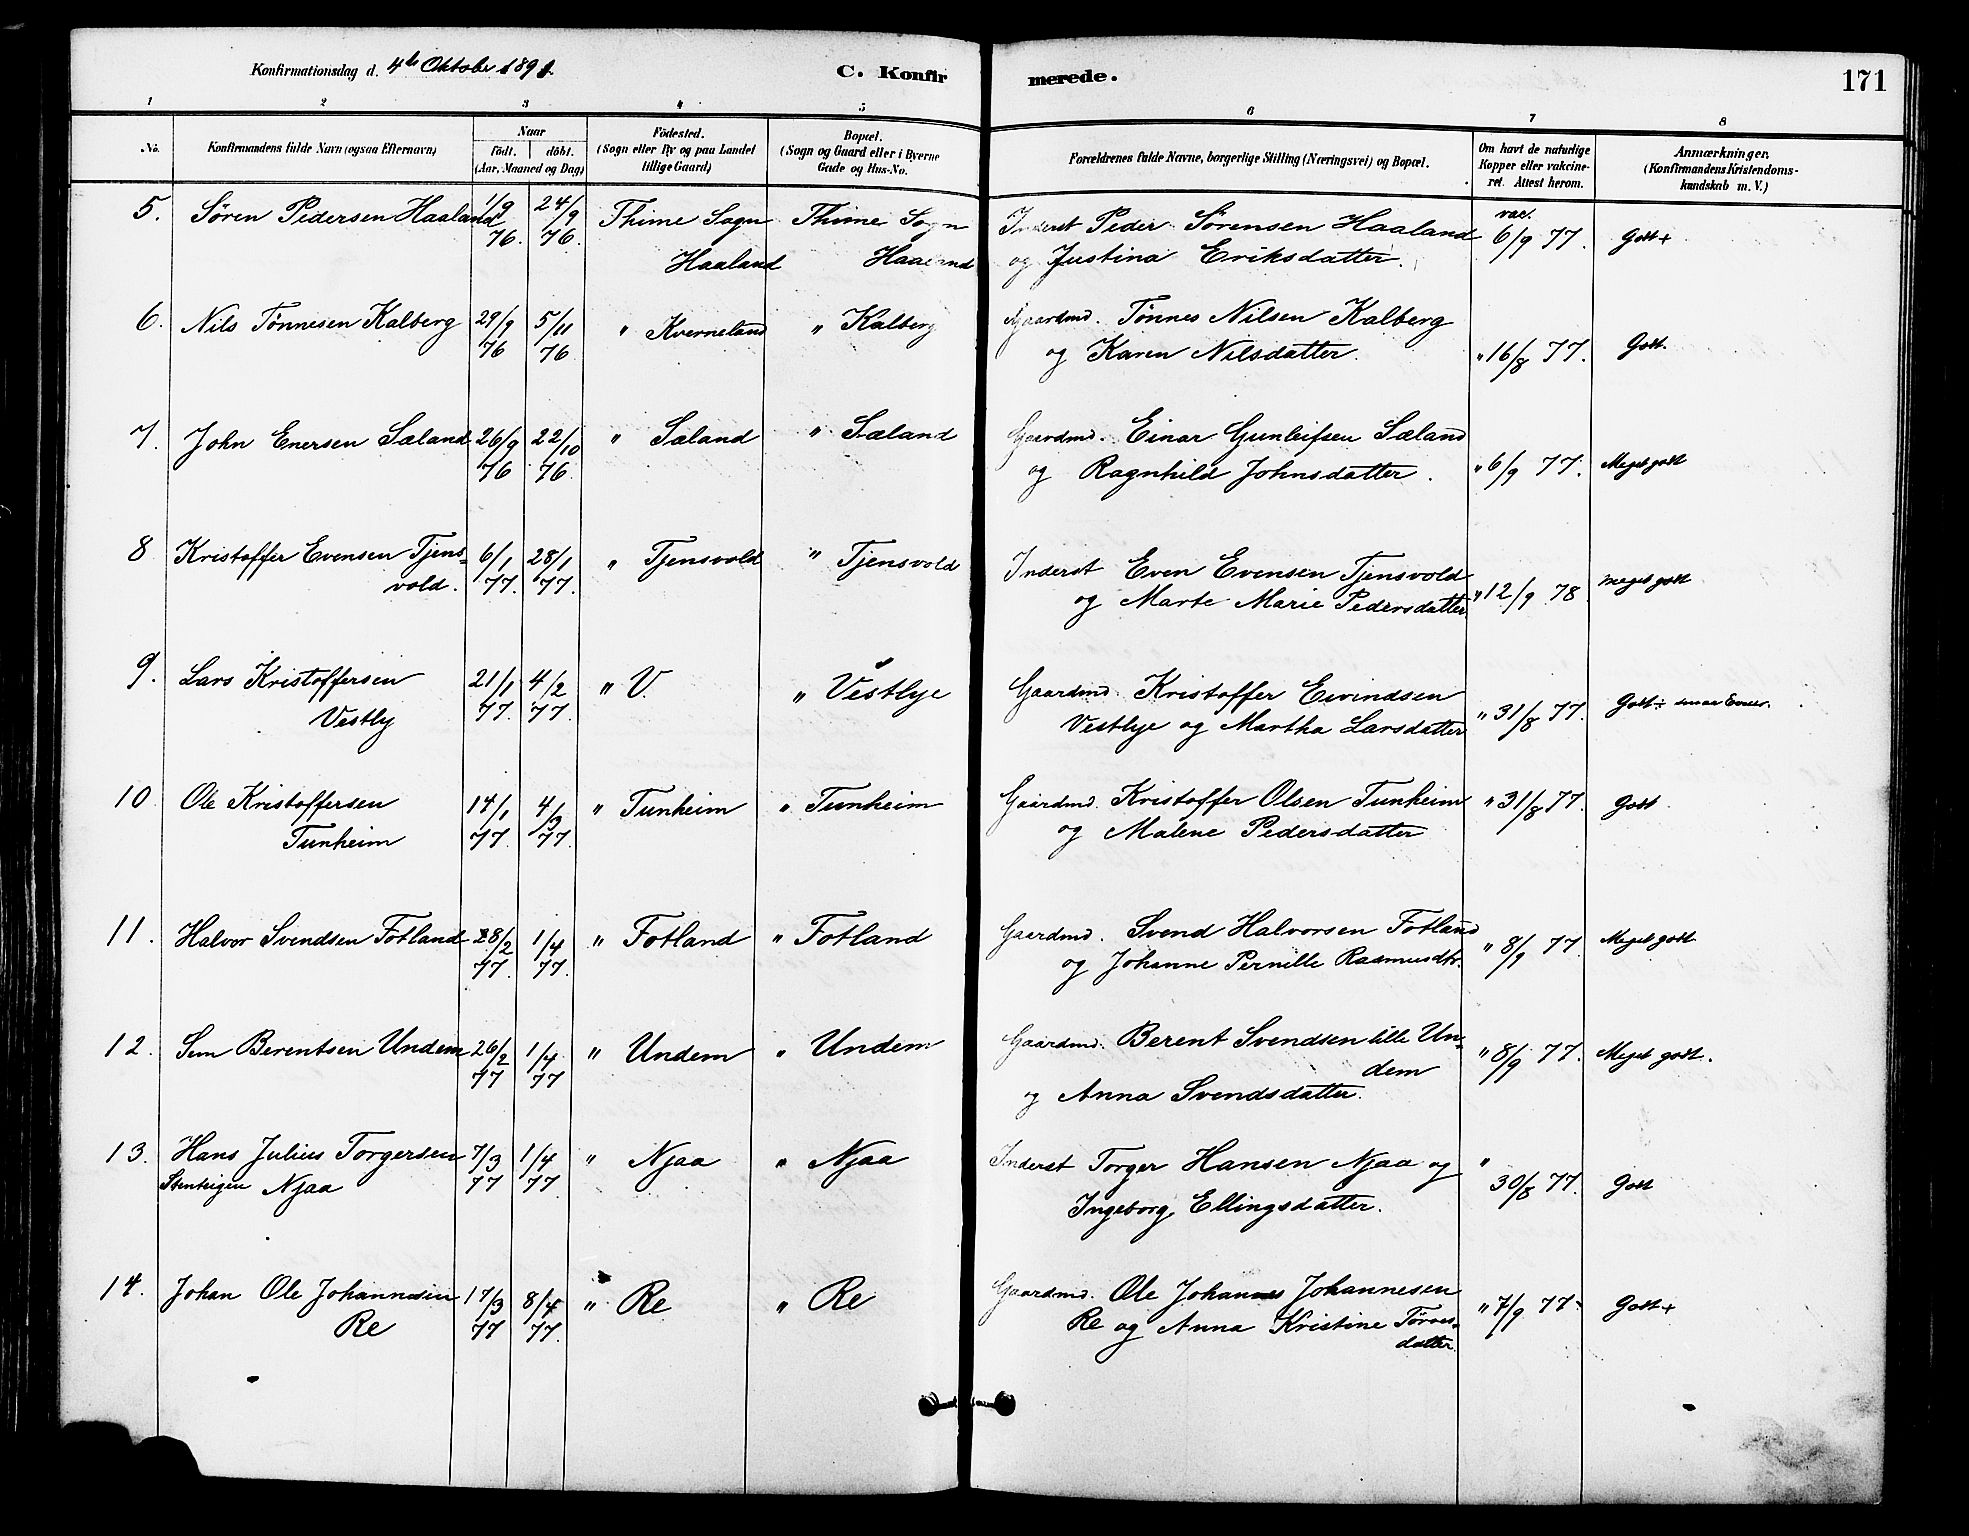 Konfirmationsdag d. 4de Oktober 1891. C. Konfirmerede. 171
1 2 3 4 5 6 7 8
No. Konfirmandens fulde Navn (ogsaa Efternavn) Naar födt. döbt. (Aar, Maaned og Dag) Födested. (Sogn eller By og paa Landet tillige Gaard) Bopæl. (Sogn og Gaard eller i Byerne Gade og Hus-No. Forældrenes fulde Navne, borgerlige Stilling (Næringsvei) og Bopæl. Om havt de naturlige Kopper eller vakcineret. Attest herom. Anmærkninger, (Konfirmandens Kristendomskundskab m. V.)
5. Søren Pedersen Haaland 1/9 24/9 Thime Sogn Thime Sogn Inderst Peder Sørensen Haaland vac. 6/9 77. Godt+
76. 76. Haaland Haaland og Justina Eriksdatter.
6. Nils Tönnesen Kalberg 29/9 5/11 " Kverneland " Kalberg Gaardmd. Tönnes Nilsen Kalberg
76 76 og Karen Nilsdatter. " 16/8 77. Godt.
7. John Enersen Sæland 26/9 22/10 " Sæland " Sæland Gaardmd. Einar Gunleifsen Sæland
76 76. og Ragnhild Johnsdatter. " 6/9 77. Meget godt
8 Kristoffer Evensen Tjens- 6/1 28/1 " Tjensvold " Tjensvold Inderst Even Evensen Tjensvold
vold. 77. 77. og Marte Marie Pedersdatter " 12/9 78 Meget godt
9. Lars Kristoffersen 21/1 4/2 " V. " Vestlye Gaardmd. Kristoffer Eivindsen
Vestly 77. 77. Vestlye og Martha Larsdatter " 31/8 77. Godt ÷ smaa Evner.
10 Ole Kristoffersen 14/1 4/3 " Tunheim " Tunheim Gaardmd. Kristoffer Olsen Tunheim " 31/8 77. Godt.
Tunheim 77. 77. og Malene Pedersdatter
11. Halvor Svendsen Fotland 28/2 1/4 " Fotland " Fotland Gaardmd. Svend Halvorsen Fotland
77. 77. og Johanne Pernille Rasmusdtr. " 8/9 77. Meget godt
12. Sem Berentsen Undem 26/2 1/4 " Undem " Undem Gaardmd. Berent Svendsen lille Un- " 8/9 77. Meget godt.
77 77 dem
og Anna Svendsdatter.
13. Hans Julius Torgersen 7/3 1/4 " Njaa " Njaa Inderst Torger Hansen Njaa og "
Njaa 77 77 Ingeborg Ellingsdatter. 30/8 77. Godt
14. Johan Ole Johannesen 17/3 8/4 " Re " Re Gaardmd. Ole Johannes Johannesen
Re 77 77. Re og Anna Kristine Törres- " 7/9 77. Godt+
datter.